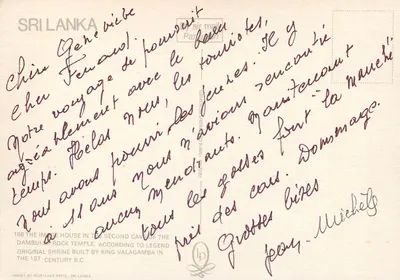 SRI LANKA
Air mail
Chère Geneviève
Cher Fernand.
Notre voyage se poursuit
agréablement avec le beau
temps. Hélas nous, les touristes,
nous avons pourri les jeunes. Il y
a 11 ans nous n'avions rencontré
aucun mendiants. Maintenant
tous les gosses font "la manche"
près des cars. Dommage.
Grosses bises
Jean, Michèle
THE IMAGE HOUSE IN THE SECOND CAVE
DAMBULLA ROCK TEMPLE. ACCORDING TO LEGEND
ORIGINAL SHRINE BUILT BY KING VALAGAMBA IN
THE 1ST CENTURY B.C.